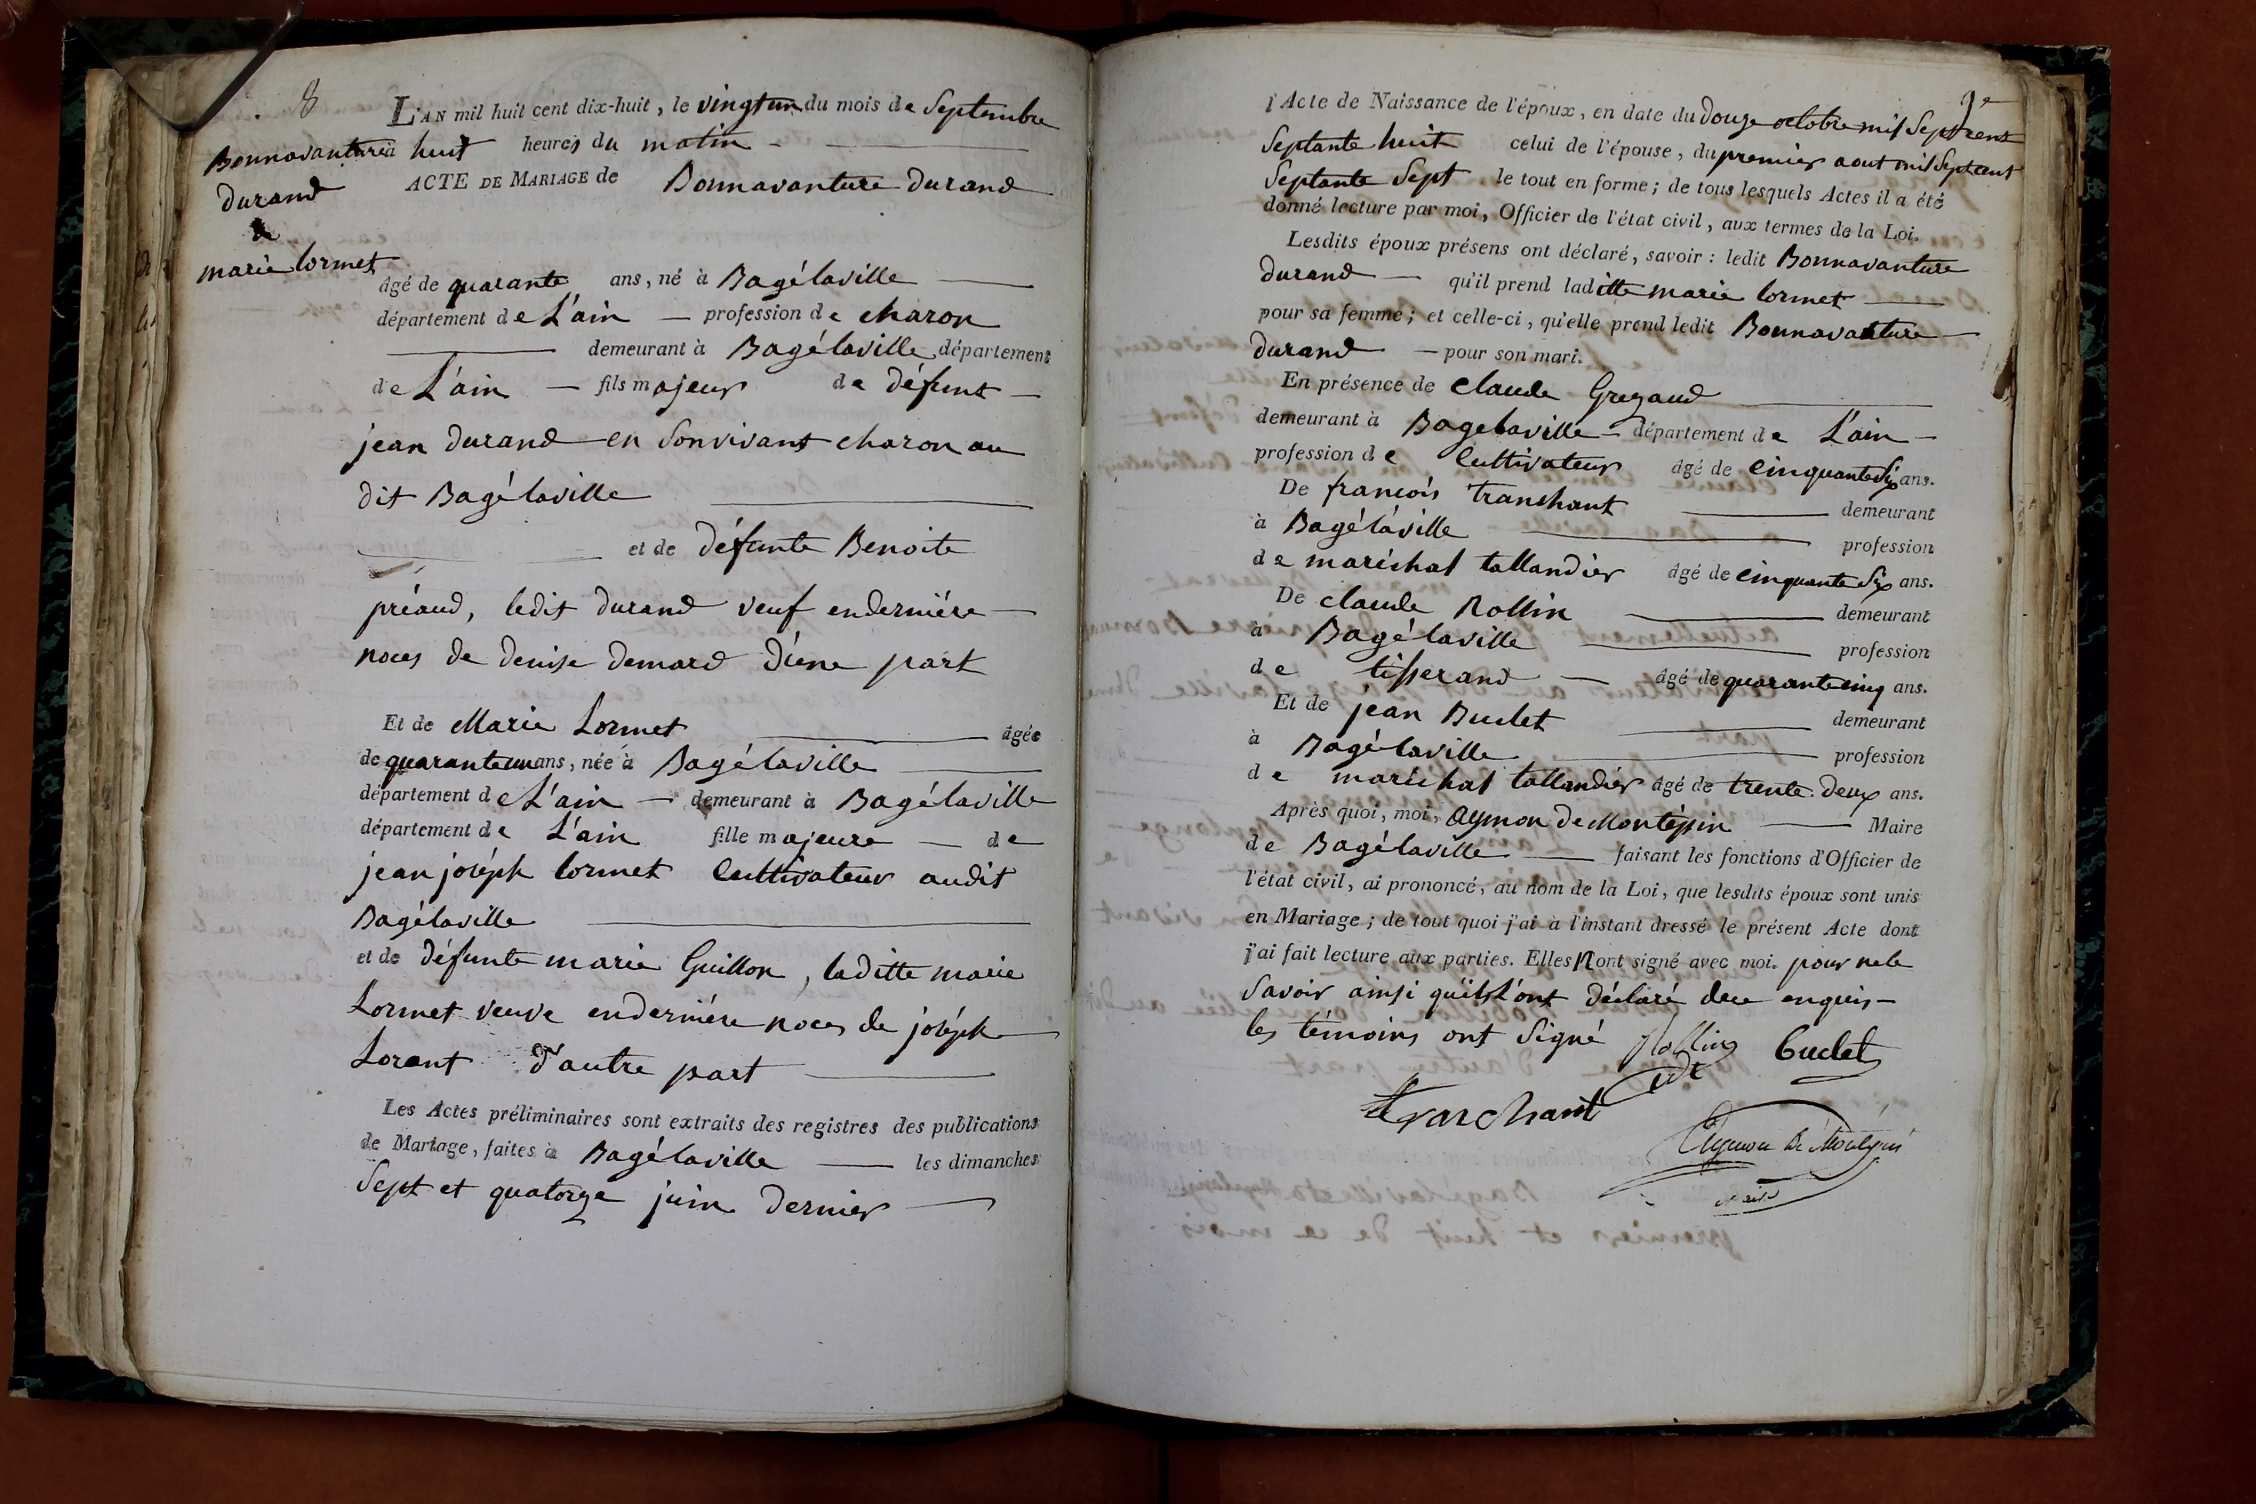 8
Bonnavanture
durand
&
marie lormet
L'AN mil huit cent dix-huit, le vingt un du mois de Septembre
à huit heures du matin
ACTE DE MARIAGE de Bonnavanture Durand
âgé de quarante ans, né à Bagélaville
département de L'ain profession de charon
demeurant à Bagélaville département
de L'ain fils majeur de défunt
jean durand en Sonvivant charon au
dit Bagélaville
et de défunte Benoite
préaud, ledit durand veuf enderniére
noces de denise demard d'une part
Et de Marie Lormet âgée
de quarante un ans, née à Bagélaville
département de L'ain demeurant à Bagélaville
département de L'ain fille majeure de
jean joséph lormet Cultivateur audit
Bagélaville
et de défunte marie Guillon, laditte marie
Lormet veuve enderniére noces de joséph
Lorent d'autre part
Les Actes préliminaires sont extraits des registres des publications
de Mariage, faites à Bagélaville les dimanches
Sept et quatorze juin dernier
9e
l'Acte de Naissance de l'époux, en date du douze octobre mil Sept cent
Septante huit celui de l'épouse, du premier aout mil Sept cent
Septante Sept le tout en forme; de tous lesquels Actes il a été
donné lecture par moi, Officier de l'état civil, aux termes de la Loi.
Lesdits époux présens ont déclaré, savoir: ledit Bonnavanture
durand qu'il prend laditte marie lormet
pour sa femme; et celle-ci, qu'elle prend ledit Bonnavanture
durand pour son mari.
En présence de claude Gregaud
demeurant à Bagelaville département de L'ain
profession de Cultivateur âgé de cinquante Six ans.
De francois tranchant demeurant
à Bagélaville profession
de maréchal tallandier âgé de cinquante Six ans.
De claude Rollin demeurant
à Bagélaville profession
de tisserand âgé de quarante cinq ans.
Et de jean Buclet demeurant
à Bagélaville profession
de maréchal tallandier âgé de trente deux ans.
Après quoi, moi, aymon de Montépin Maire
de Bagélaville faisant les fonctions d'Officier de
l'état civil, ai prononcé, au nom de la Loi, que lesdits époux sont unis
en Mariage; de tout quoi j'ai à l'instant dressé le présent Acte dont
j'ai fait lecture aux parties. Elles Nont signé avec moi. pour ne le
Savoir ainsi qu'ils L'ont déclaré de ce enquis
les témoins ont Signé Rollin buclet
tranchant
Aymon de Montépin
maire